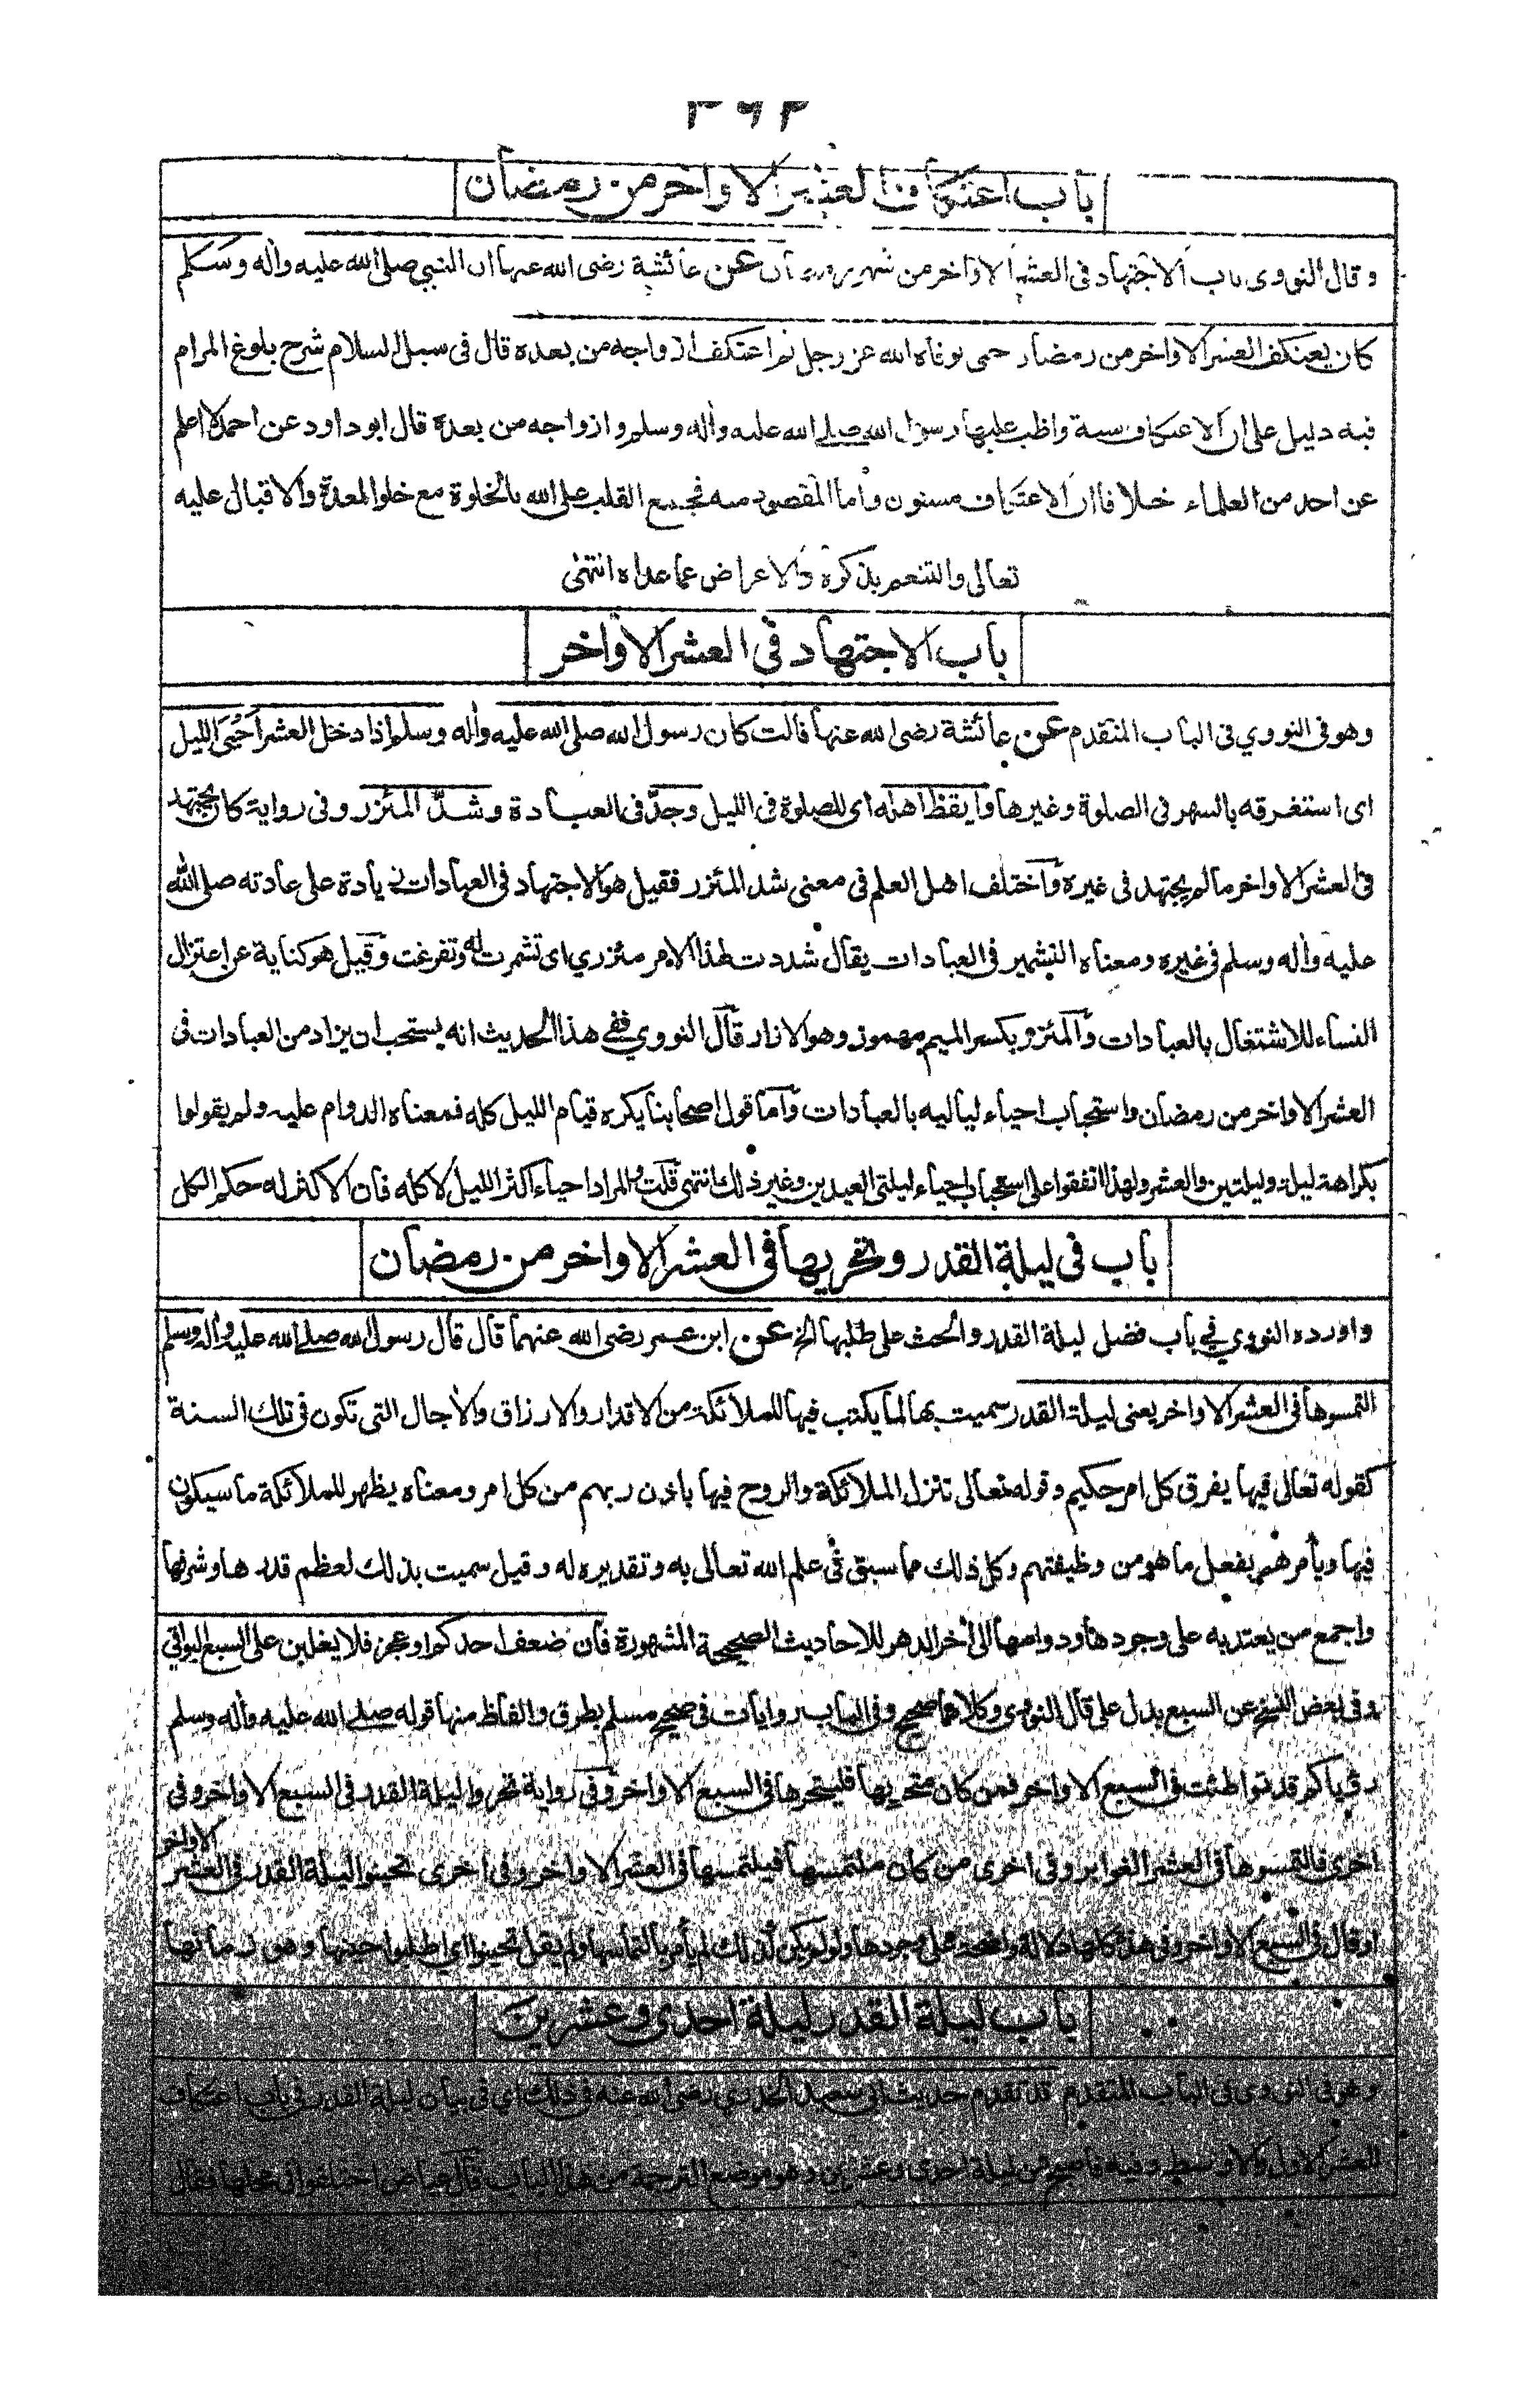 باب اعتكاف العشر الاواخر من رمضان
وقال النووى باب الاجتهاد فى العشر الاواخر من شهر رمضان عن عائشة رضى الله عنها ان النبي صلى الله عليه واٰله وسلم
كان يعتكف العشر الاواخر من رمضان حتى توفاه الله عز وجل ثم اعتكف ازواجه من بعده قال فى سبل السلام شرح بلوغ المرام
فيه دليل على ان الاعتكاف سنة واظب عليها رسول الله صلى الله عليه واٰله وسلم وازواجه من بعده قال ابو داود عن احمد لا اعلم
عن احد من العلماء خلافا ان الاعتكاف مسنون واما المقصود منه فجمع القلب على الله بالخلوة مع خلو المعدة والاقبال عليه
تعالى والتنعم بذكره والاعراض عما عداه انتهى
باب الاجتهاد فى العشر الاواخر
وهو فى النووي فى الباب المتقدم عن عائشة رضى الله عنها قالت كان رسول الله صلى الله عليه واٰله وسلم اذا دخل العشر اَحْيَى الليل
اى استغرقه بالسهر فى الصلوة وغيرها وايقظ اهله اى للصلوة فى الليل وجدّ فى العبادة وشدّ المئزر وفى رواية كان يجتهد
فى العشر الاواخر ما لم يجتهد فى غيره واختلف اهل العلم فى معنى شد المئزر فقيل هو الاجتهاد فى العبادات زيادة على عادته صلى الله
عليه واٰله وسلم فى غيره ومعناه التشمير فى العبادات يقال شددت لهذا الامر مئزري اى تشمرت له وتفرغت وقيل هو كناية عن اعتزال
النساء للاشتغال بالعبادات والمئزر بكسر الميم مهموز وهو الازار قال النووي ففى هذا الحديث انه يستحب ان يزاد من العبادات فى
العشر الاواخر من رمضان واستحباب احياء لياليه بالعبادات واما قول اصحابنا يكره قيام الليل كله فمعناه الدوام عليه ولم يقولوا
بكراهة ليلة وليلتين والعشر ولهذا اتفقوا على استحباب احياء ليلتى العيدين وغير ذلك انتهى قلت والمراد احياء اكثر الليل لا كله فان الاكثر له حكم الكل
باب فى ليلة القدر وتحريها فى العشر الاواخر من رمضان
واورده النووي فى باب فضل ليلة القدر والحث على طلبها الخ عن ابن عمر رضى الله عنهما قال قال رسول الله صلى الله عليه واٰله وسلم
التمسوها فى العشر الاواخر يعنى ليلة القدر سميت بها لما يكتب فيها للملائكة من الاقدار والارزاق والاٰجال التى تكون فى تلك السنة
كقوله تعالى فيها يفرق كل امر حكيم وقوله تعالى تنزل الملائكة والروح فيها باذن ربهم من كل امر ومعناه يظهر للملائكة ما سيكون
فيها ويأمرهم بفعل ما هو من وظيفتهم وكل ذلك مما سبق فى علم الله تعالى به وتقديره له وقيل سميت بذلك لعظم قدرها وشرفها
واجمع من يعتد به على وجودها ودوامها الى اٰخر الدهر للاحاديث الصحيحة المشهورة فان ضعف احدكم او عجز فلا يغلبن على السبع البواقى
وفى بعض النسخ عن السبع بدل على قال النووي وكلاهما صحيح وفى الباب روايات فى صحيح مسلم بطرق والفاظ منها قوله صلى الله عليه واٰله وسلم
رؤياكم قد تواطئت فى السبع الاواخر فمن كان متحريها فليتحرها فى السبع الاواخر وفى رواية تحروا ليلة القدر فى السبع الاواخر وفى
اخرى فالتمسوها فى العشر الغوابر وفى اخرى من كان ملتمسها فيلتمسها فى العشر الاواخر وفى اخرى تحينوا ليلة القدر فى العشر الاواخر
او قال فى السبع الاواخر وفى هذه كلها دلالة واضحة على وجودها ولو لم يكن كذلك لم يأمر بالتماسها ولم يقل تحينوا اي اطلبوا حينها وهو زمانها
باب ليلة القدر ليلة احدى وعشرين
وهو فى النووى فى الباب المتقدم قد تقدم حديث ابى سعيد الخدري رضى الله عنه فى ذلك اي فى بيان ليلة القدر فى باب اعتكاف
العشر الاول والاوسط وفيه ليلة احدى وعشرين وهو موضع الترجمة من هذا الباب قال عياض اختلفوا فى محلها فقال